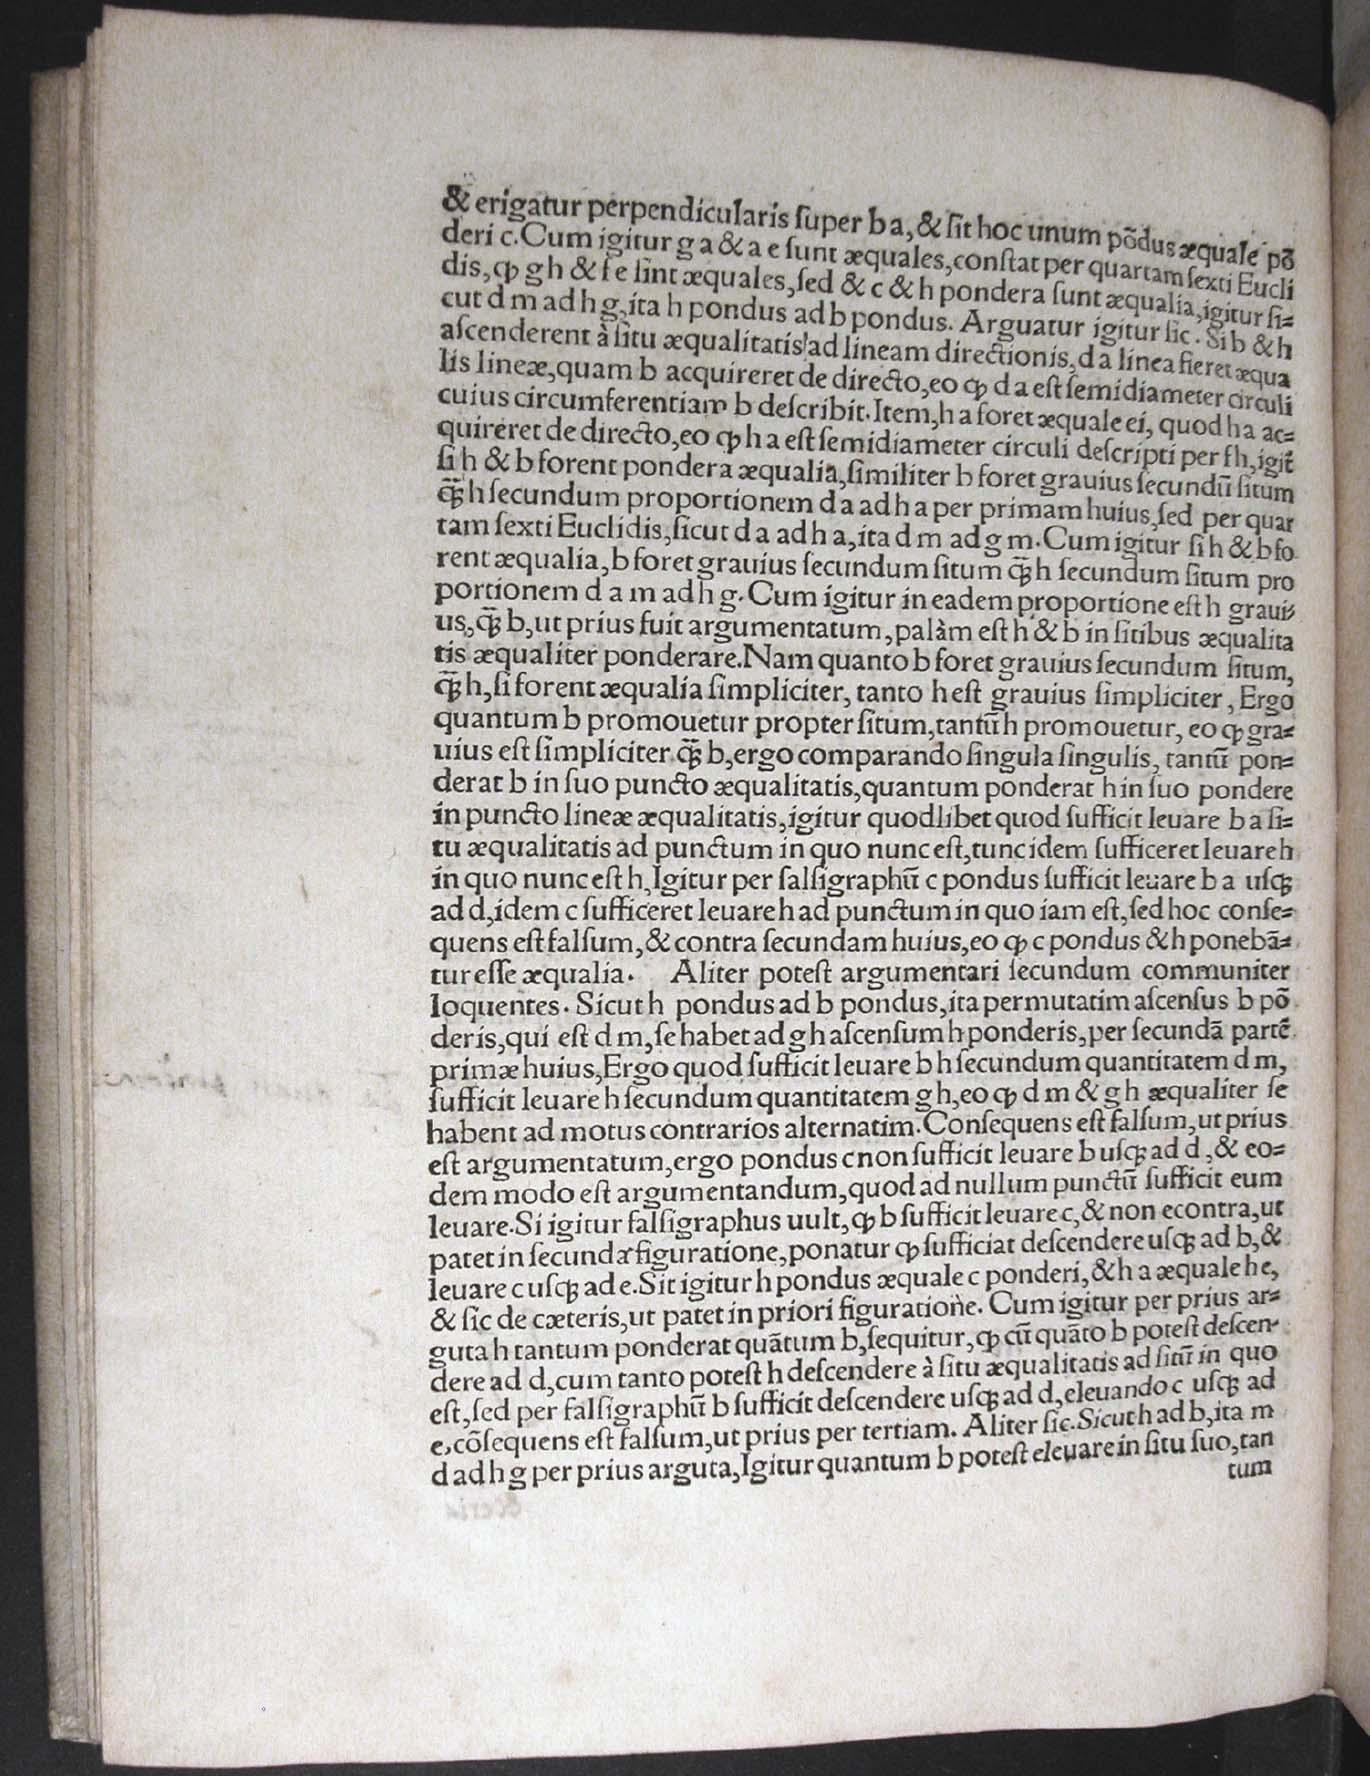 & erigatur perpendicularis ſuper b a, & ſit hoc unum põdus æquale põ
deri c. Cum igitur g a & a e ſunt æquales, conſtat per quartam ſexti Eucli
dis, ꝙ g h & f e ſint æquales, ſed & c & h pondera ſunt æqualia, igitur ſi⸗
cut d m ad h g, ita h pondus ad b pondus. Arguatur igitur ſic. Si b & h
aſcenderent à ſitu æqualitatis ad lineam directionis, d a linea fieret æqua
lis lineæ, quam b acquireret de directo, eo ꝙ d a eſt ſemidiameter circuli
cuius circumferentiam b deſcribit. Item, h a foret æquale ei, quod h a ac⸗
quireret de directo, eo ꝙ h a eſt ſemidiameter circuli deſcripti per f h, igit̃
ſi h & b forent pondera æqualia, ſimiliter b foret grauius ſecundũ ſitum
ꝗ̃ h ſecundum proportionem d a ad h a per primam huius, ſed per quar
tam ſexti Euclidis, ſicut d a ad h a, ita d m ad g m. Cum igitur ſi h & b fo
rent æqualia, b foret grauius ſecundum ſitum ꝗ̃ h ſecundum ſitum pro
portionem d a m ad h g. Cum igitur in eadem proportione eſt h graui⸗
us, ꝗ̃ b, ut prius fuit argumentatum, palàm eſt h & b in ſitibus æqualita
tis æqualiter ponderare. Nam quanto b foret grauius ſecundum ſitum,
ꝗ̃ h, ſi forent æqualia ſimpliciter, tanto h eſt grauius ſimpliciter, Ergo
quantum b promouetur propter ſitum, tantũ h promouetur, eo ꝙ gra⸗
uius eſt ſimpliciter ꝗ̃ b, ergo comparando ſingula ſingulis, tantũ pon⸗
derat b in ſuo puncto æqualitatis, quantum ponderat h in ſuo pondere
in puncto lineæ æqualitatis, igitur quodlibet quod ſufficit leuare b a ſi⸗
tu æqualitatis ad punctum in quo nunc eſt, tunc idem ſufficeret leuare h
in quo nunc eſt h, Igitur per falſigraphũ c pondus ſufficit leuare b a uſꝗ
ad d, idem c ſufficeret leuare h ad punctum in quo iam eſt, ſed hoc conſe⸗
quens eſt falſum, & contra ſecundam huius, eo ꝙ c pondus & h ponebã⸗
tur eſſe æqualia. Aliter poteſt argumentari ſecundum communiter
loquentes. Sicut h pondus ad b pondus, ita permutatim aſcenſus b põ
deris, qui eſt d m, ſe habet ad g h aſcenſum h ponderis, per ſecundã partẽ
primæ huius, Ergo quod ſufficit leuare b h ſecundum quantitatem d m,
ſufficit leuare h ſecundum quantitatem g h, eo ꝙ d m & g h æqualiter ſe
habent ad motus contrarios alternatim. Conſequens eſt falſum, ut prius
eſt argumentatum, ergo pondus c non ſufficit leuare b uſꝗ ad d, & eo⸗
dem modo eſt argumentandum, quod ad nullum punctũ ſufficit eum
leuare. Si igitur falſigraphus uult, ꝙ b ſufficit leuare c, & non econtra, ut
patet in ſecunda figuratione, ponatur ꝙ ſufficiat deſcendere uſꝗ ad b, &
leuare c uſꝗ ad e. Sit igitur h pondus æquale c ponderi, & h a æquale h e,
& ſic de cæteris, ut patet in priori figuratione. Cum igitur per prius ar⸗
guta h tantum ponderat quãtum b, ſequitur, ꝙ cũ quãto b poteſt deſcen⸗
dere ad d, cum tanto poteſt h deſcendere à ſitu æqualitatis ad ſitũ in quo
eſt, ſed per falſigraphũ b ſufficit deſcendere uſꝗ ad d, eleuando c uſꝗ ad
e, cõſequens eſt falſum, ut prius per tertiam. Aliter ſic. Sicut h ad b, ita m
d ad h g per prius arguta, Igitur quantum b poteſt eleuare in ſitu ſuo, tan
tum